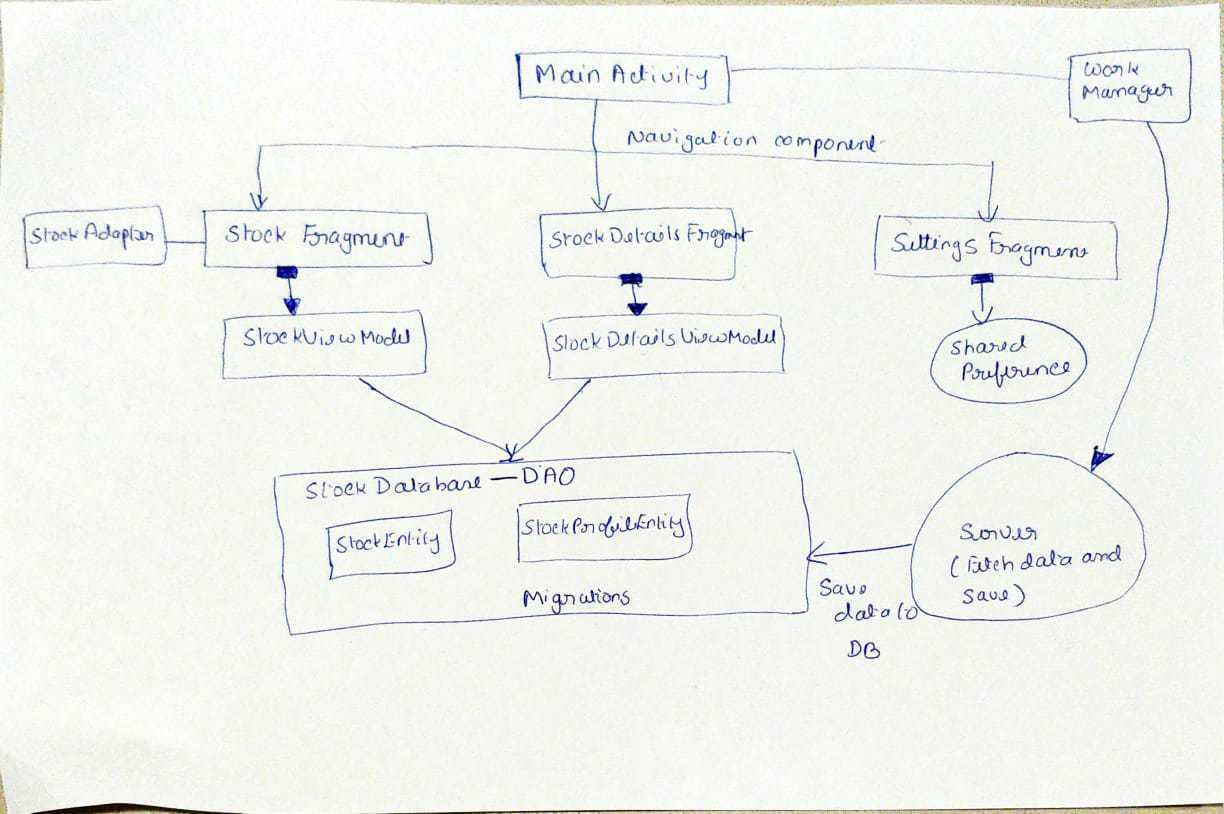 Main Activity
Work
Manager
Navigation component
Stock Adapter
Stock Fragment
StockDetails Fragment
Settings Fragment
StockViewModel
StockDetails ViewModel
Shared
Preference
Stock Database — DAO
StockEntity
StockProfileEntity
Migrations
Server
(Fetch data and
save)
Save
data to
DB